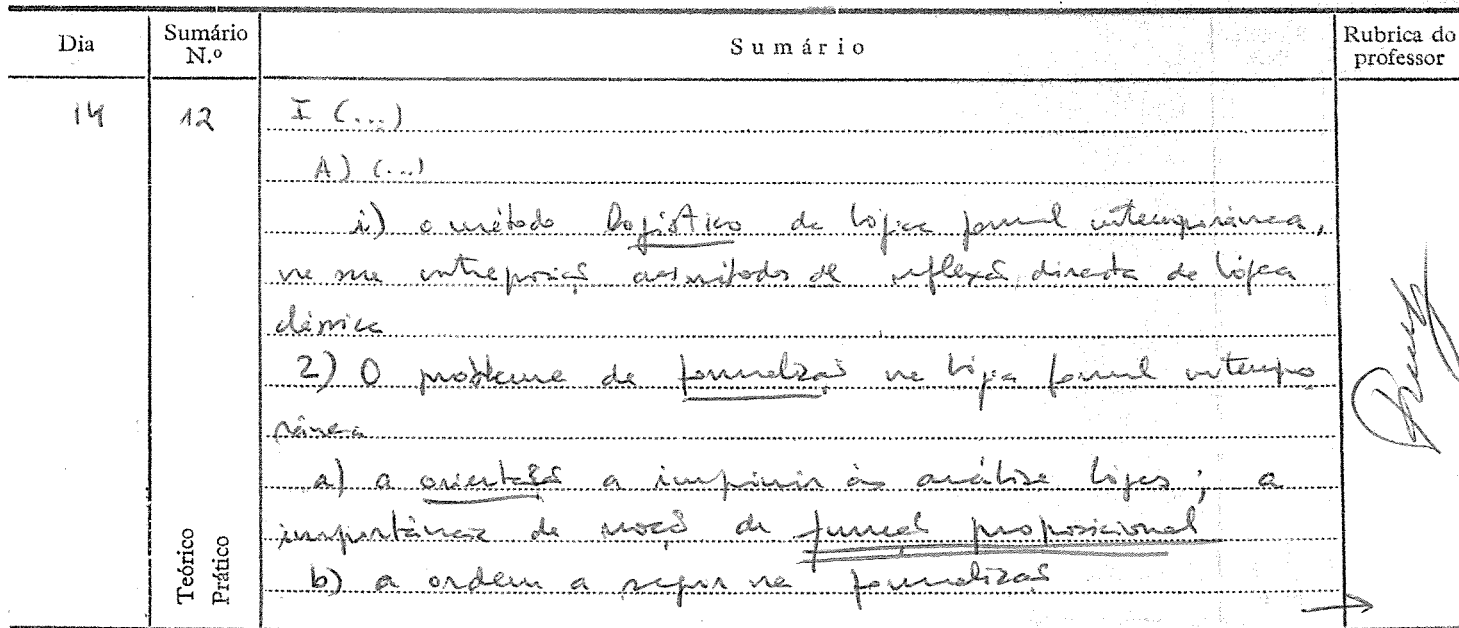 Dia
Sumário N.º
Sumário
Rubrica do professor
14
12
I (...)
A) (...)
i) o método logístico da lógica formal contemporânea,
na sua contraposição aos métodos de reflexão directa da lógica
clássica
2) O problema da formalização na lógica formal contempo
rânea
a) a orientação a imprimir às análise lógica; a
importância da noção de função proposicional
b) a ordem a seguir na formalização
Teórico
Prático